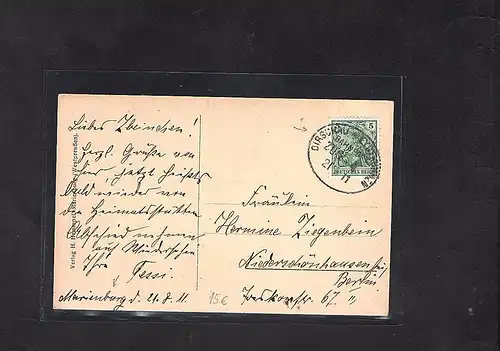 Liebes Zbeinchen!
Herzl. Grüße von
hier, jetzt heißt's
bald wieder von
der Heimatstätte
Abschied nehmen
auf Wiedersehn
Ihre
Tessi.
Marienburg d. 21.8.11.
15€
Verlag H.
(Westpreußen).
DIRSCHAU
BAHN
11
5
DEUTSCHES REICH
Fräulein
Hermine Ziegenbein
Niederschönhausen bei
Berlin
67.